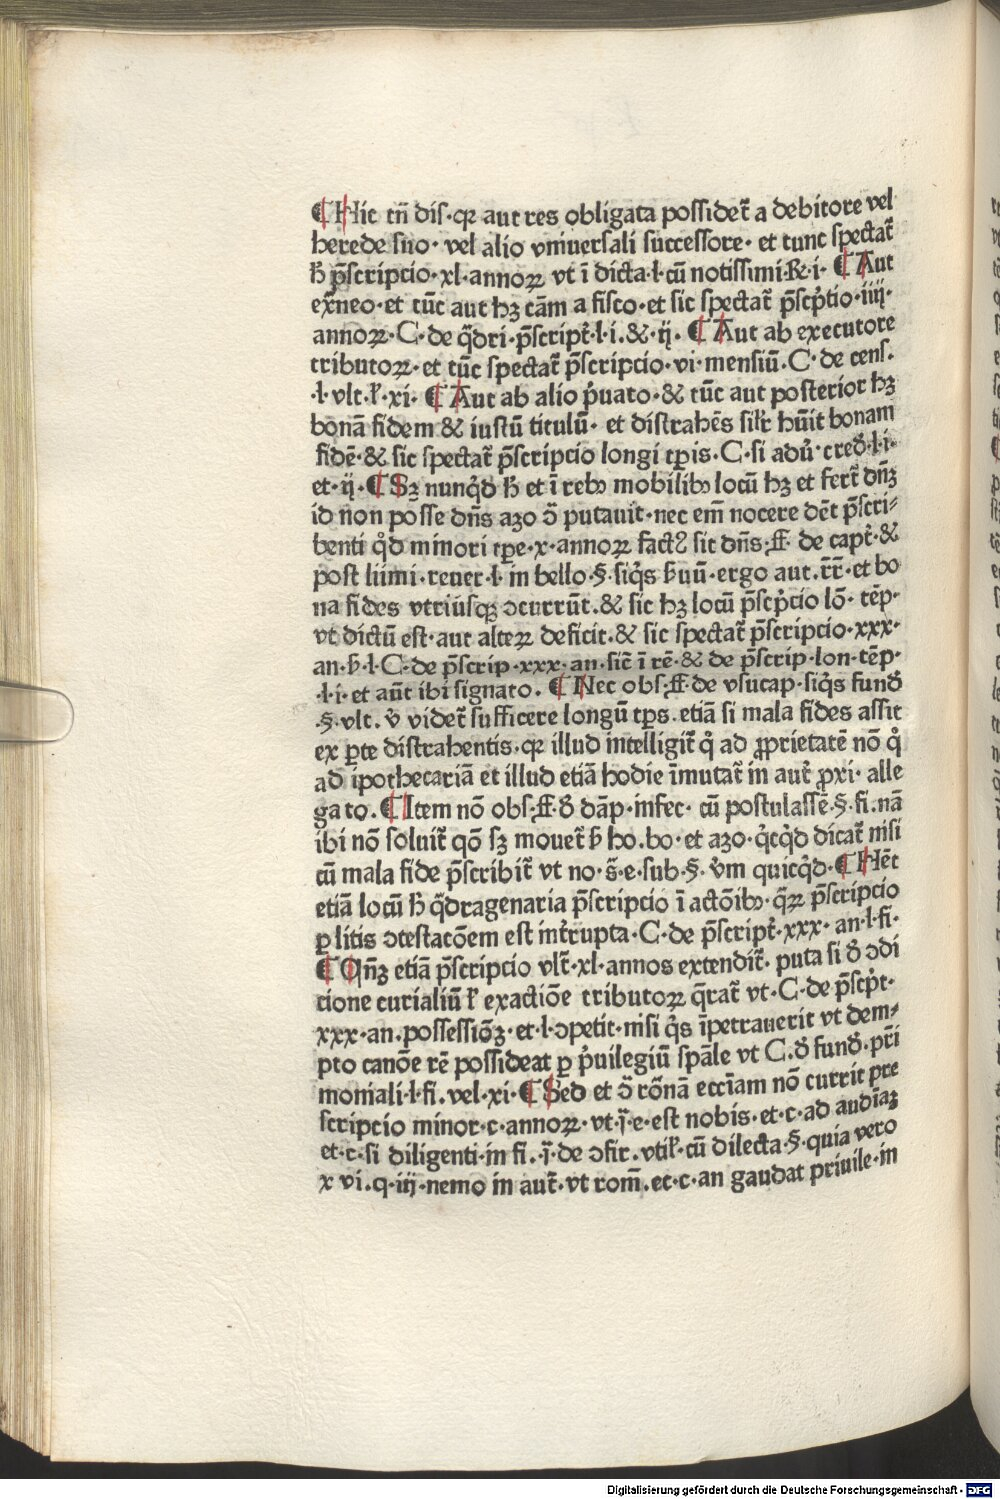 ¶ Hic tñ dis·qꝛ aut res obligata possidet᷑ a debitore vel
herede suo· vel alio vniuersali successore· et tunc spectat᷑
ħ p̄scripcio·xl·annoꝝ vt ī dicta·l·cū notissimi·R·i· ¶ Aut
extͣneo·et tūc aut hꝫ cām a fisco·et sic spectat᷑ p̄scp̓tio·iiij·
annoꝝ·C·de q̄dri·p̄script̓·l·i.&·ij. ¶ Aut ab executore
tributoꝝ·et tūc spectat᷑ p̄scripcio·vi·mensiū.C·de cens.
·l·vlt.ł·xi· ¶ Aut ab alio p̓uato·& tūc aut posterior hꝫ
bonā fidem & iustū titulū· et distrahēs silr̓ hūit bonam
fidē·& sic spectat᷑ p̄scripcio longi tꝑis·C·si adu̓·cred̓·l·i·
et·ij·¶ Sꝫ nunq̓d ħ et ī rebꝰ mobilibꝰ locū hꝫ et fert᷑ dn̄ꝫ
id non posse dn̄s azo ↄ̄ putauit·nec em̄ nocere dēt p̄scri⸗
benti q̓d minori tꝑe·x·annoꝝ factꝰ sit dn̄s·ff· de capt̓·&
post liimi·reuer·l· in bello·§·siq̓s ƀuū·ergo aut.r̄r̄·et bo
na fides vtriusqꝫ ↄcurrūt.& sic hꝫ locū p̄scp̓cio lō· tēp·
vt dictū est·aut alteꝝ deficit·& sic spectat᷑ p̄scripcio·xxx·
an·ƀ·l·C·de p̄scrip·xxx·an·sic̄ ī rē·& de p̄scrip·lon·tēp·
·l·i·et aūt ibi signato. ¶ Nec obs·ff·de vsucap·siq̓s fund̓
·§·vlt. v̓ videt᷑ sufficere longū tꝑs.etiā si mala fides assit
ex ꝑte distrahentis·qꝛ illud intelligit᷑ q̓ ad ꝓprietatē nō q̓
ad ipothecariā et illud etiā hodie īmutat᷑ in aut᷑ ꝓxi· alle
gato. ¶ Item nō obs·ff·d̓ dāp·infec· cū postulassē·§·fi.nā
ibi nō soluit᷑ qō sꝫ mouet᷑ ƀ ho.bo·et azo·q̓cq̓d dicat᷑ nisi
cū mala fide p̄scribit᷑ vt no·s̄·e·sub·§·v̓m quicq̓d·¶ Hēt
etiā locū ħ q̓dragenaria p̄scripcio ī actōibꝰ·q̄ꝝ p̄scripcio
ꝑ litis ↄtestacōem est int̓rupta·C·de p̄script̓·xxx· an·l·fi·
¶ Qn̄ꝫ etiā p̄scripcio vlt᷑·xl·annos extendit᷑· puta si d̓ ↄdi
cione curialiū ł exactiōe tributoꝝ q̄rat᷑ vt·C·de p̄scp̓t·
xxx·an.possessiōꝫ·et·l·ↄpetit·nisi q̓s īpetrauerit vt dem⸗
pto canōe rē possideat ꝑ p̓uilegiū spāle vt C.d̓ fund̓.pr̄i
moniali·l·fi.vel·xi·¶ Sed et ↄ̄ rōnā eccīam nō currit pre
scripcio minor·c·annoꝝ·vt·j̄·e·est nobis·et·c·ad audīaꝫ
et·c·si diligenti·in fi.·j̄·de ↄfir.vtił·cū dilecta·§·quia vero
xvi.q·iij·nemo in aut᷑·vt rom̄.ec·c·an gaudat priuile·in
Digitalisierung gefördert durch die Deutsche Forschungsgemeinschaft - DFG